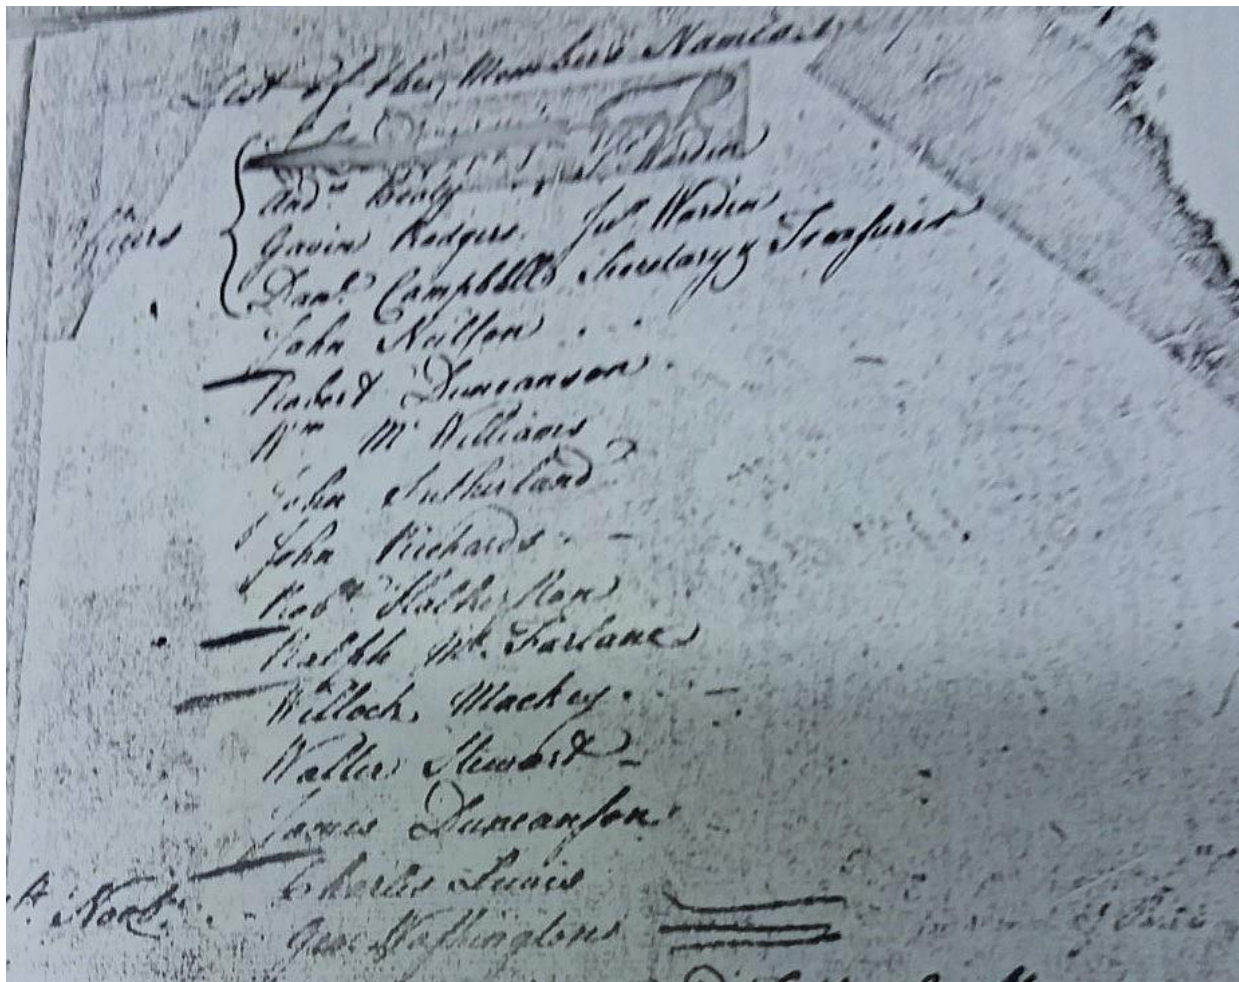 List of the Members Names
S. Warden
And.w Beaty
Officers
Gavin Rodgers. Ju.r Warden
Dan.l Campbell Secretary & Treasurer
John Neilson
Robert Duncanson
W.m Mc Williams
John Sutherland
John Richards
Rob.t Halkerston
Ralph Mc. Farlane
Willock Mackey
Walter Stewart
James Duncanson
Charles Lewis
Nov.br
Geo. Washington